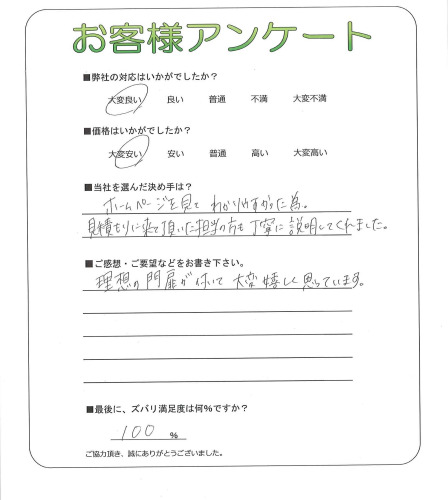 お客様アンケート
■弊社の対応はいかがでしたか?
大変良い 良い 普通 不満 大変不満
■価格はいかがでしたか?
大変安い 安い 普通 高い 大変高い
■当社を選んだ決め手は?
ホームページを見て わかりやすかった為。
見積もりに来て頂いた担当の方も丁寧に説明してくれました。
■ご感想・ご要望などをお書き下さい。
理想の門扉が付いて大変嬉しく思っています。
■最後に、ズバリ満足度は何%ですか?
100 %
ご協力頂き、誠にありがとうございました。